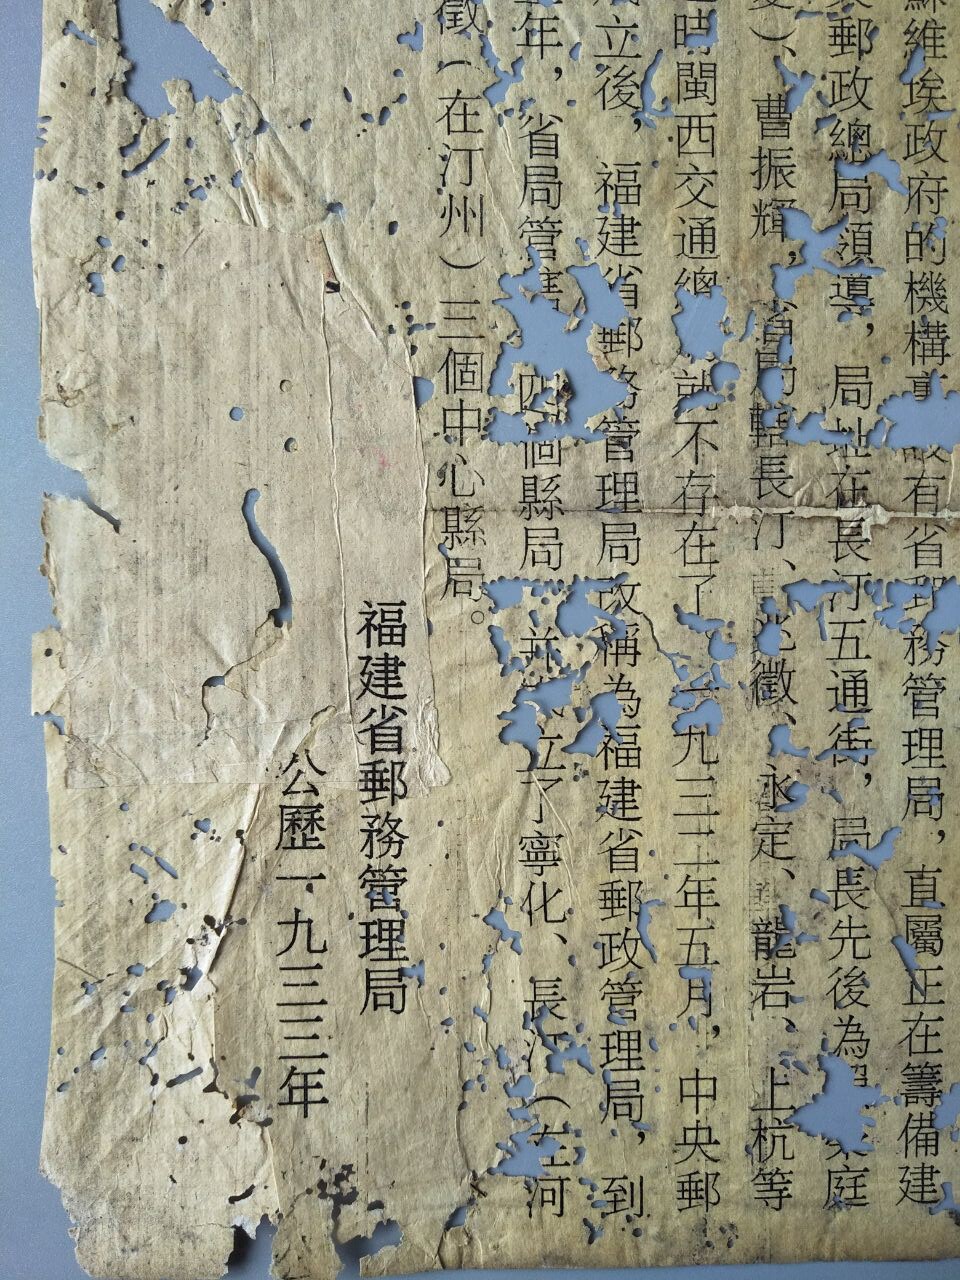 蘇維埃政府的機構 設有省郵務管理局，直屬正在籌備建
郵政總局領導，局址在長汀五通街，局長先後為 庭
）、曹振輝，省局 轄長汀、 兆徵、永定、龍岩、上杭等
時閩西交通總 就不存在了。一九三二年五月，中央郵
立後，福建省郵務管理局改稱為福建省郵政管理局，到
年，省局管 四個縣局 並 立了寧化、長汀（在河
徵（在汀州）三個中心縣局。
福建省郵務管理局
公歷一九三三年